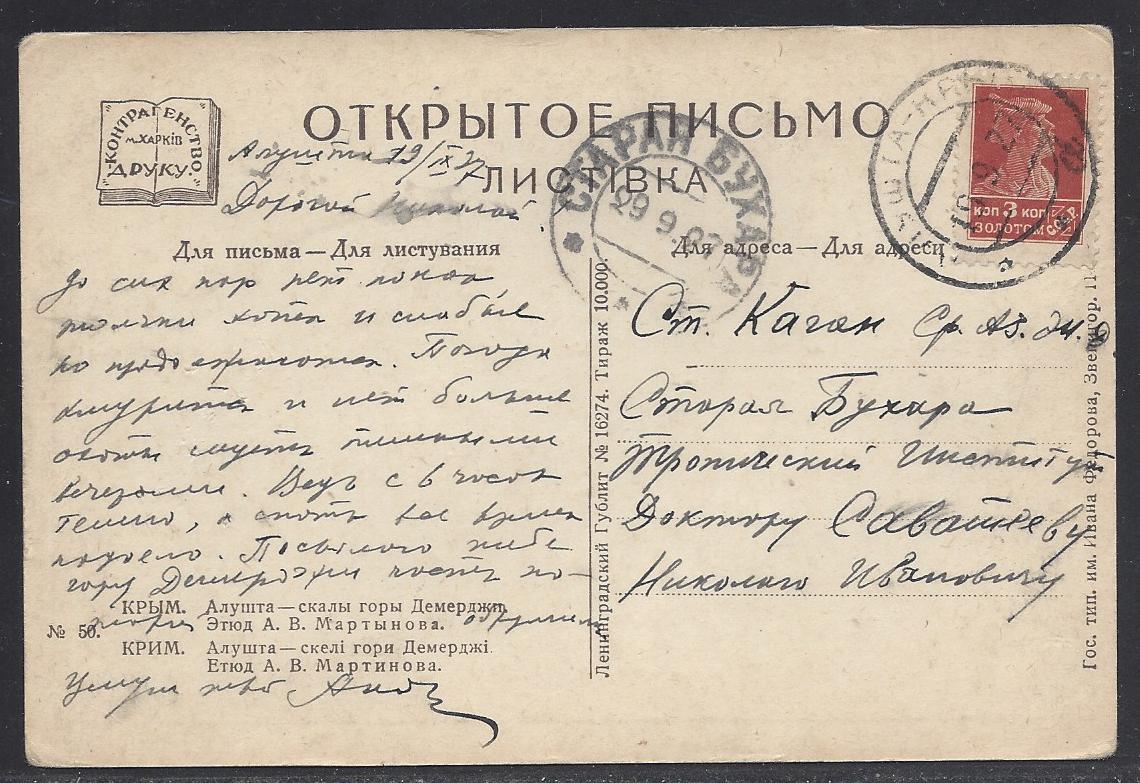 КОНТРАГЕНСТВО
м.ХАРКІВ
ДРУКУ.
ОТКРЫТОЕ ПИСЬМО
ЛИСТІВКА
Алушта 19/IX 27
Дорогой Николай
Для письма — Для листування
До сих пор нет
и слабые
но
Погода
хмурится и нет больше
вечерами. Ведь с 6 часов
темно, а спать все время
надоело. Посылаю тебе
гору Демерджи часть
которой обрушилась
Целую тебя
КРЫМ. Алушта — скалы горы Демерджи.
Этюд А. В. Мартынова.
№ 50.
КРИМ. Алушта — скелі гори Демерджі.
Етюд А. В. Мартинова.
Ленинградский Гублит № 16274. Тираж 10.000.
СТАРАЯ БУХАРА
29 9 27
Для адреса — Для адреси
АЛУШТА-КРЫМ
19 9 27
КОП 3 КОП
ЗОЛОТОМ СССР
Ст. Каган Ср. Аз. ж. д.
Старая Бухара
Тропический Институт
Доктору Саватееву
Николаю Ивановичу
Гос. тип. им. Ивана Федорова, Звенигор. 11